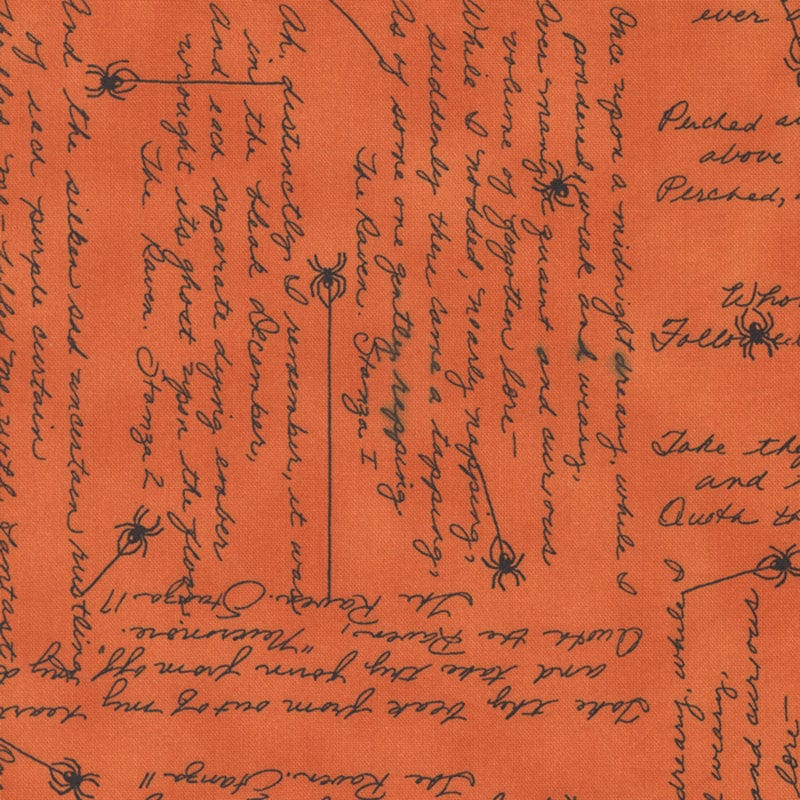 Once upon a midnight dreary, while I
pondered, weak and weary,
Over many a quaint and curious
volume of forgotten lore—
While I nodded, nearly napping,
suddenly there came a tapping,
As of some one gently rapping,
The Raven. Stanza I
Ah, distinctly I remember, it was
in the bleak December,
And each separate dying ember
wrought its ghost upon the floor.
The Raven. Stanza 2
And the silken sad uncertain rustling
of each purple curtain
Thrilled me—filled me with fantast
ever
Perched a
above
Perched,
Who
Follow
Take thy
and
Quoth th
Take thy beak from out of my heart
and take thy form from off my d
Quoth the Raven, "Nevermore.
The Raven. Stanza 17
The Raven. Stanza 11
I
dreary, while
weary,
and curious
lore—